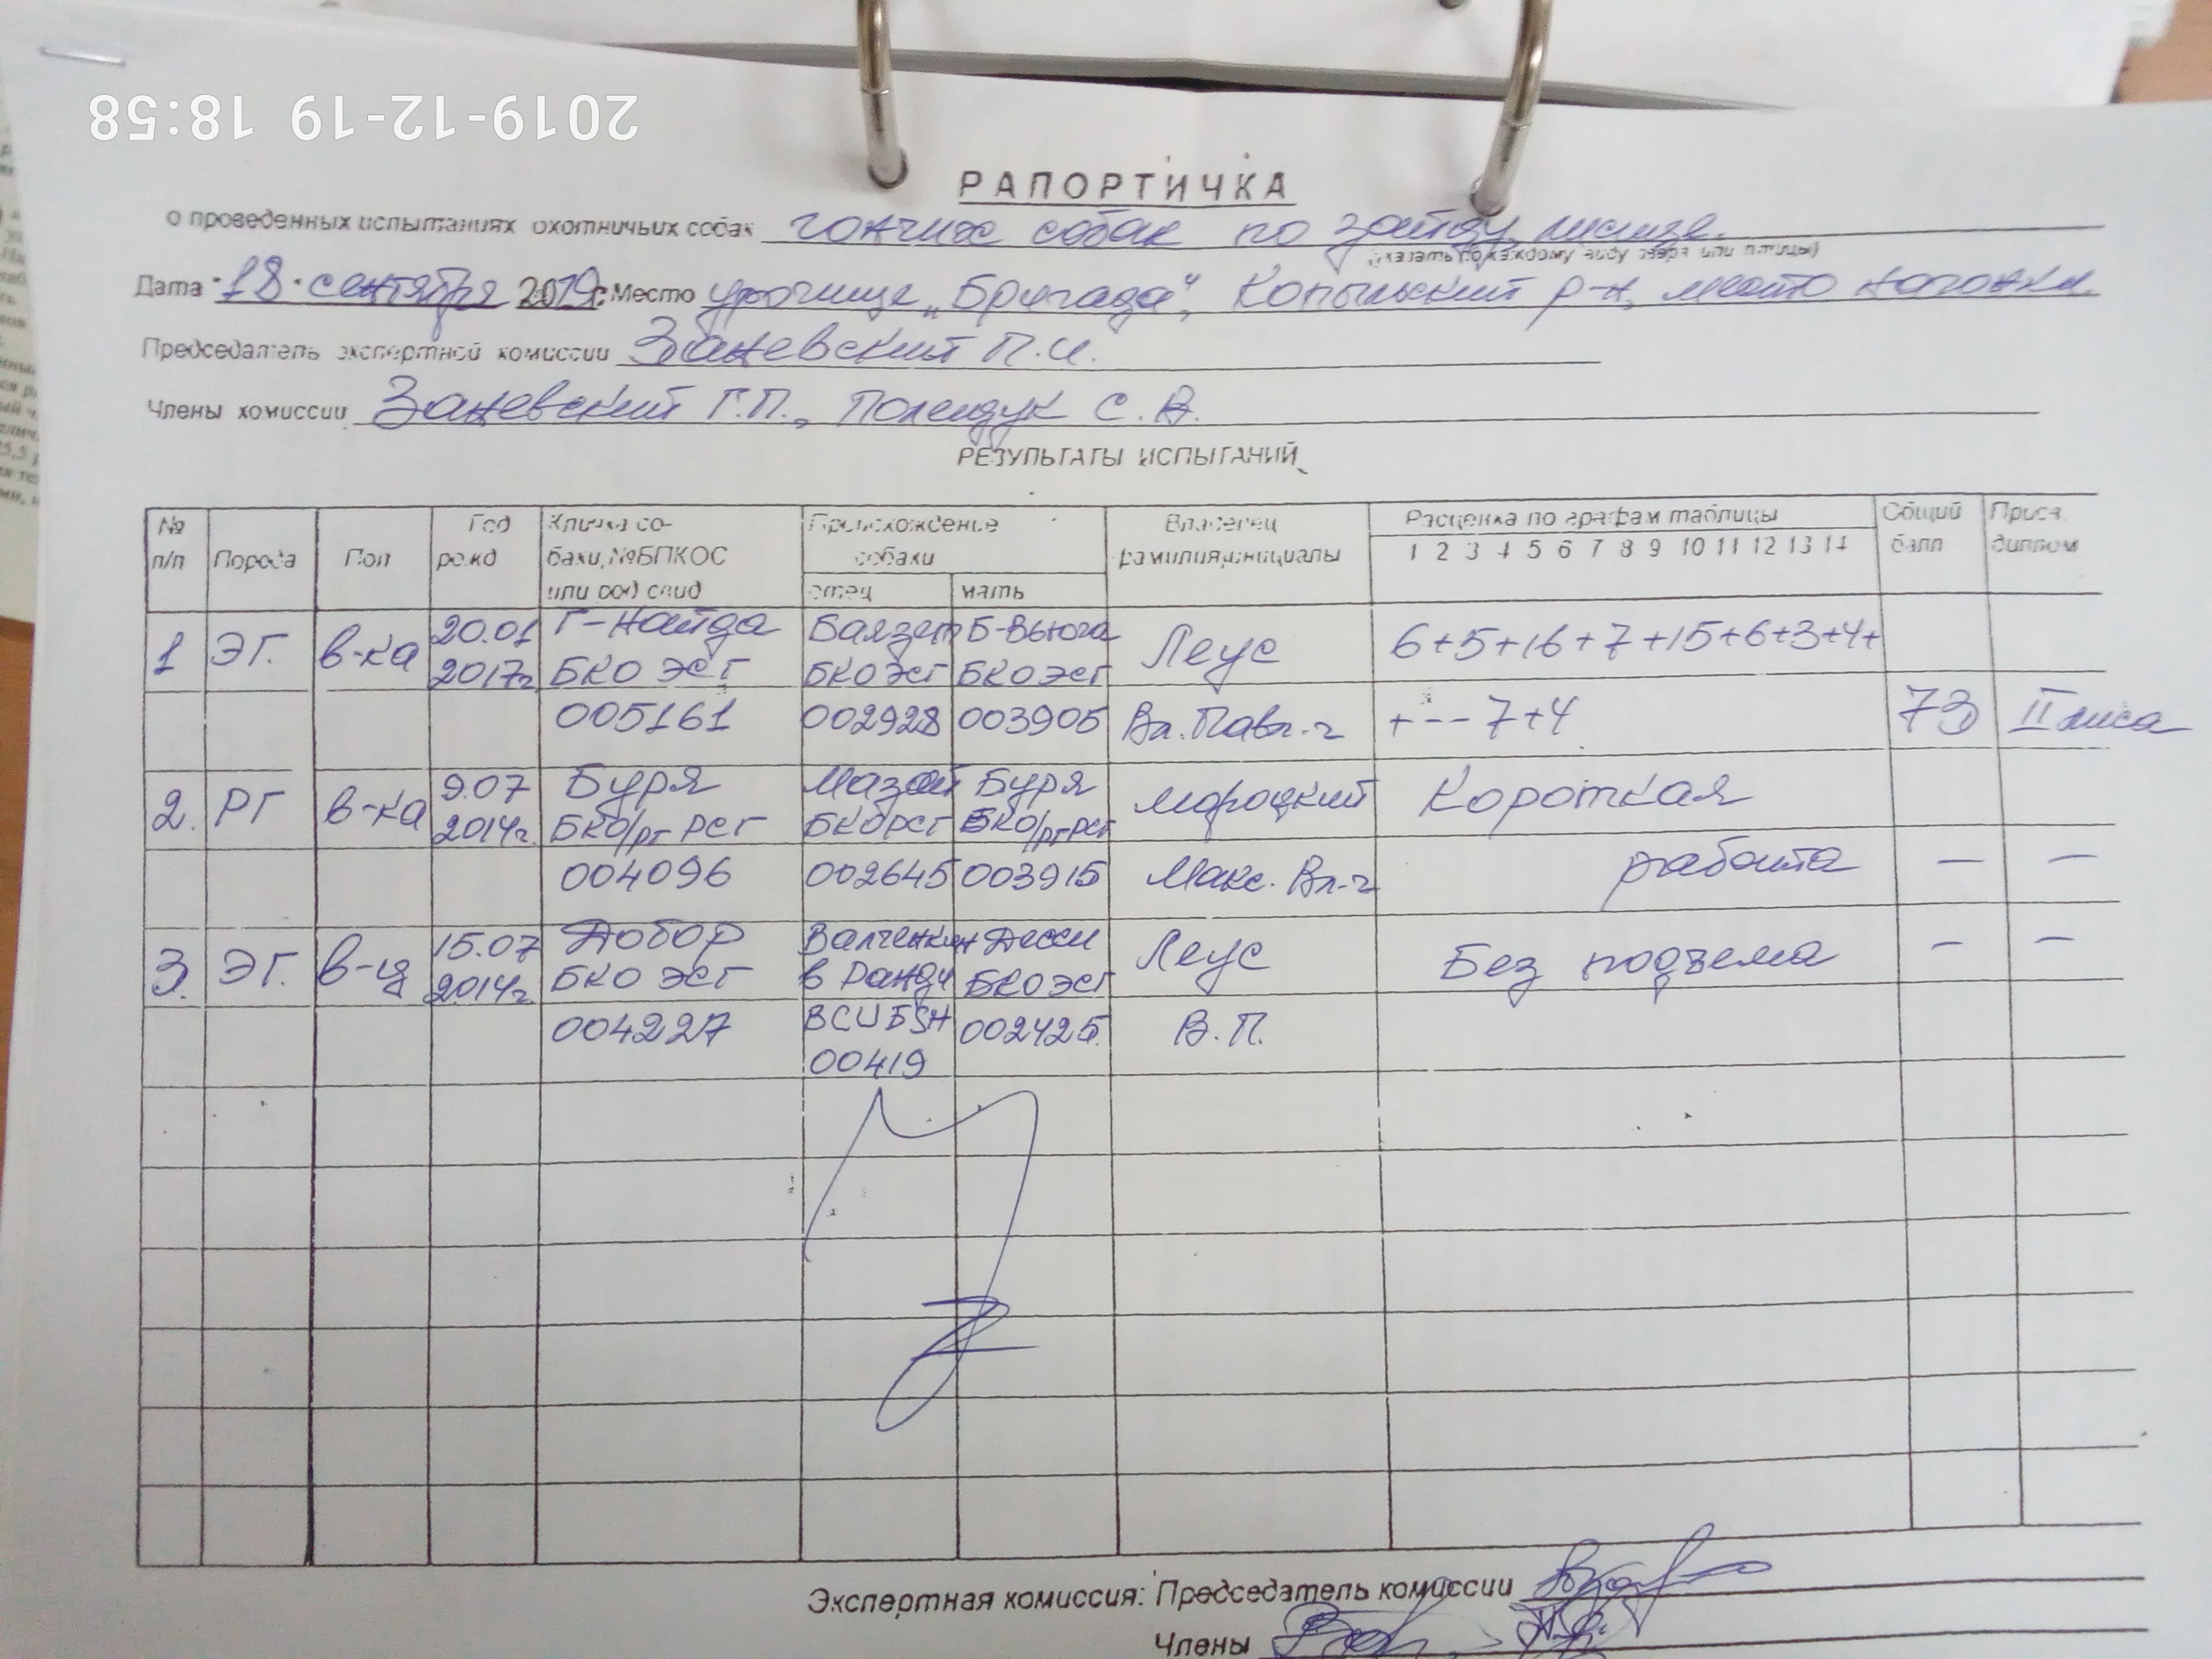 2019-12-19 18:58
РАПОРТИЧКА
о проведенных испытаниях охотничьих собак гончих собак по зайцу, лисице.
(указать по каждому виду зверя или птицы)
Дата "18" сентября 2019г. Место урочище „Бригада", Копыльский р-н, место нагонки.
Председатель экспертной комиссии Заневский П.И.
Члены комиссии Заневский Г.П., Полещук С.В.
РЕЗУЛЬТАТЫ ИСПЫТАНИЙ
№ п/п Порода Пол Год рожд Кличка собаки, №БПКОС или род свид Происхождение собаки отец мать Владелец фамилия, инициалы Расценка по графам таблицы Общий балл Прися. диплом
1 2 3 4 5 6 7 8 9 10 11 12 13 14
1 ЭГ. в-ка 20.01 Г-Найда Баязет Б-Вьюга Леус 6+5+16+7+15+6+3+4+
2017г. БКО ЭСГ БКОЭСГ БКОЭСГ
005161 002928 003905 Вл. Павл-ч +--- 7+4 73 II лиса
2. РГ в-ка 9.07 Буря Мазай Буря Мороцкий Короткая
2014г. БКО/рг РСГ БКОРСГ БКО/ргРСГ
004096 002645 003915 Макс. Вл-ч работа — —
3. ЭГ. в-ц 15.07 Добор Десси Леус Без подъема – –
2014г. БКО ЭСГ БКОЭСГ
004227 002425. В.П.
00419
Экспертная комиссия: Председатель комиссии
Члены